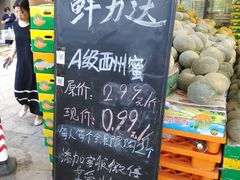 鲜为达
A级西州蜜
原价: 2.99元/斤
现价: 0.99元/斤
每人两个会员限购2个
添加客服微信